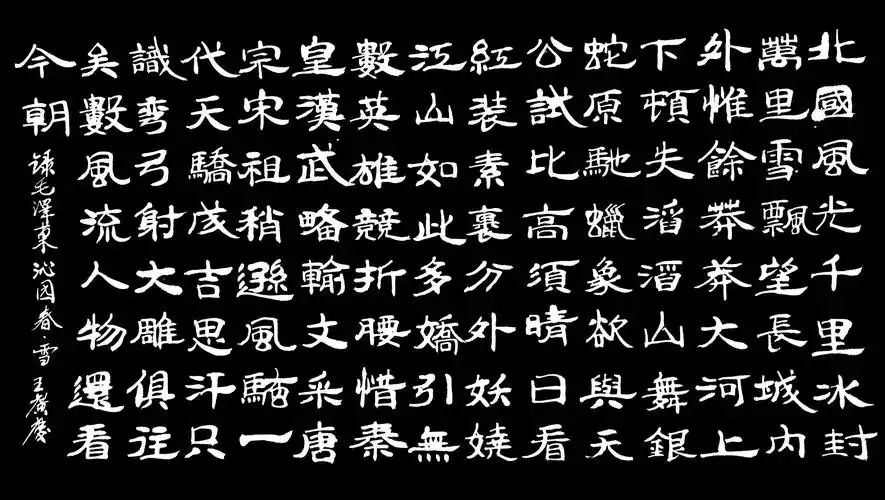 北國風光千里冰封
萬里雪飄望長城內
外惟餘莽莽大河上
下頓失滔滔山舞銀
蛇原馳蠟象欲與天
公試比高須晴日看
紅装素裹分外妖嬈
江山如此多嬌引無
數英雄競折腰惜秦
皇漢武略輸文采唐
宗宋祖稍遜風騷一
代天驕成吉思汗只
識彎弓射大雕俱往
矣數風流人物還看
今朝
錄毛澤東沁园春·雪 王